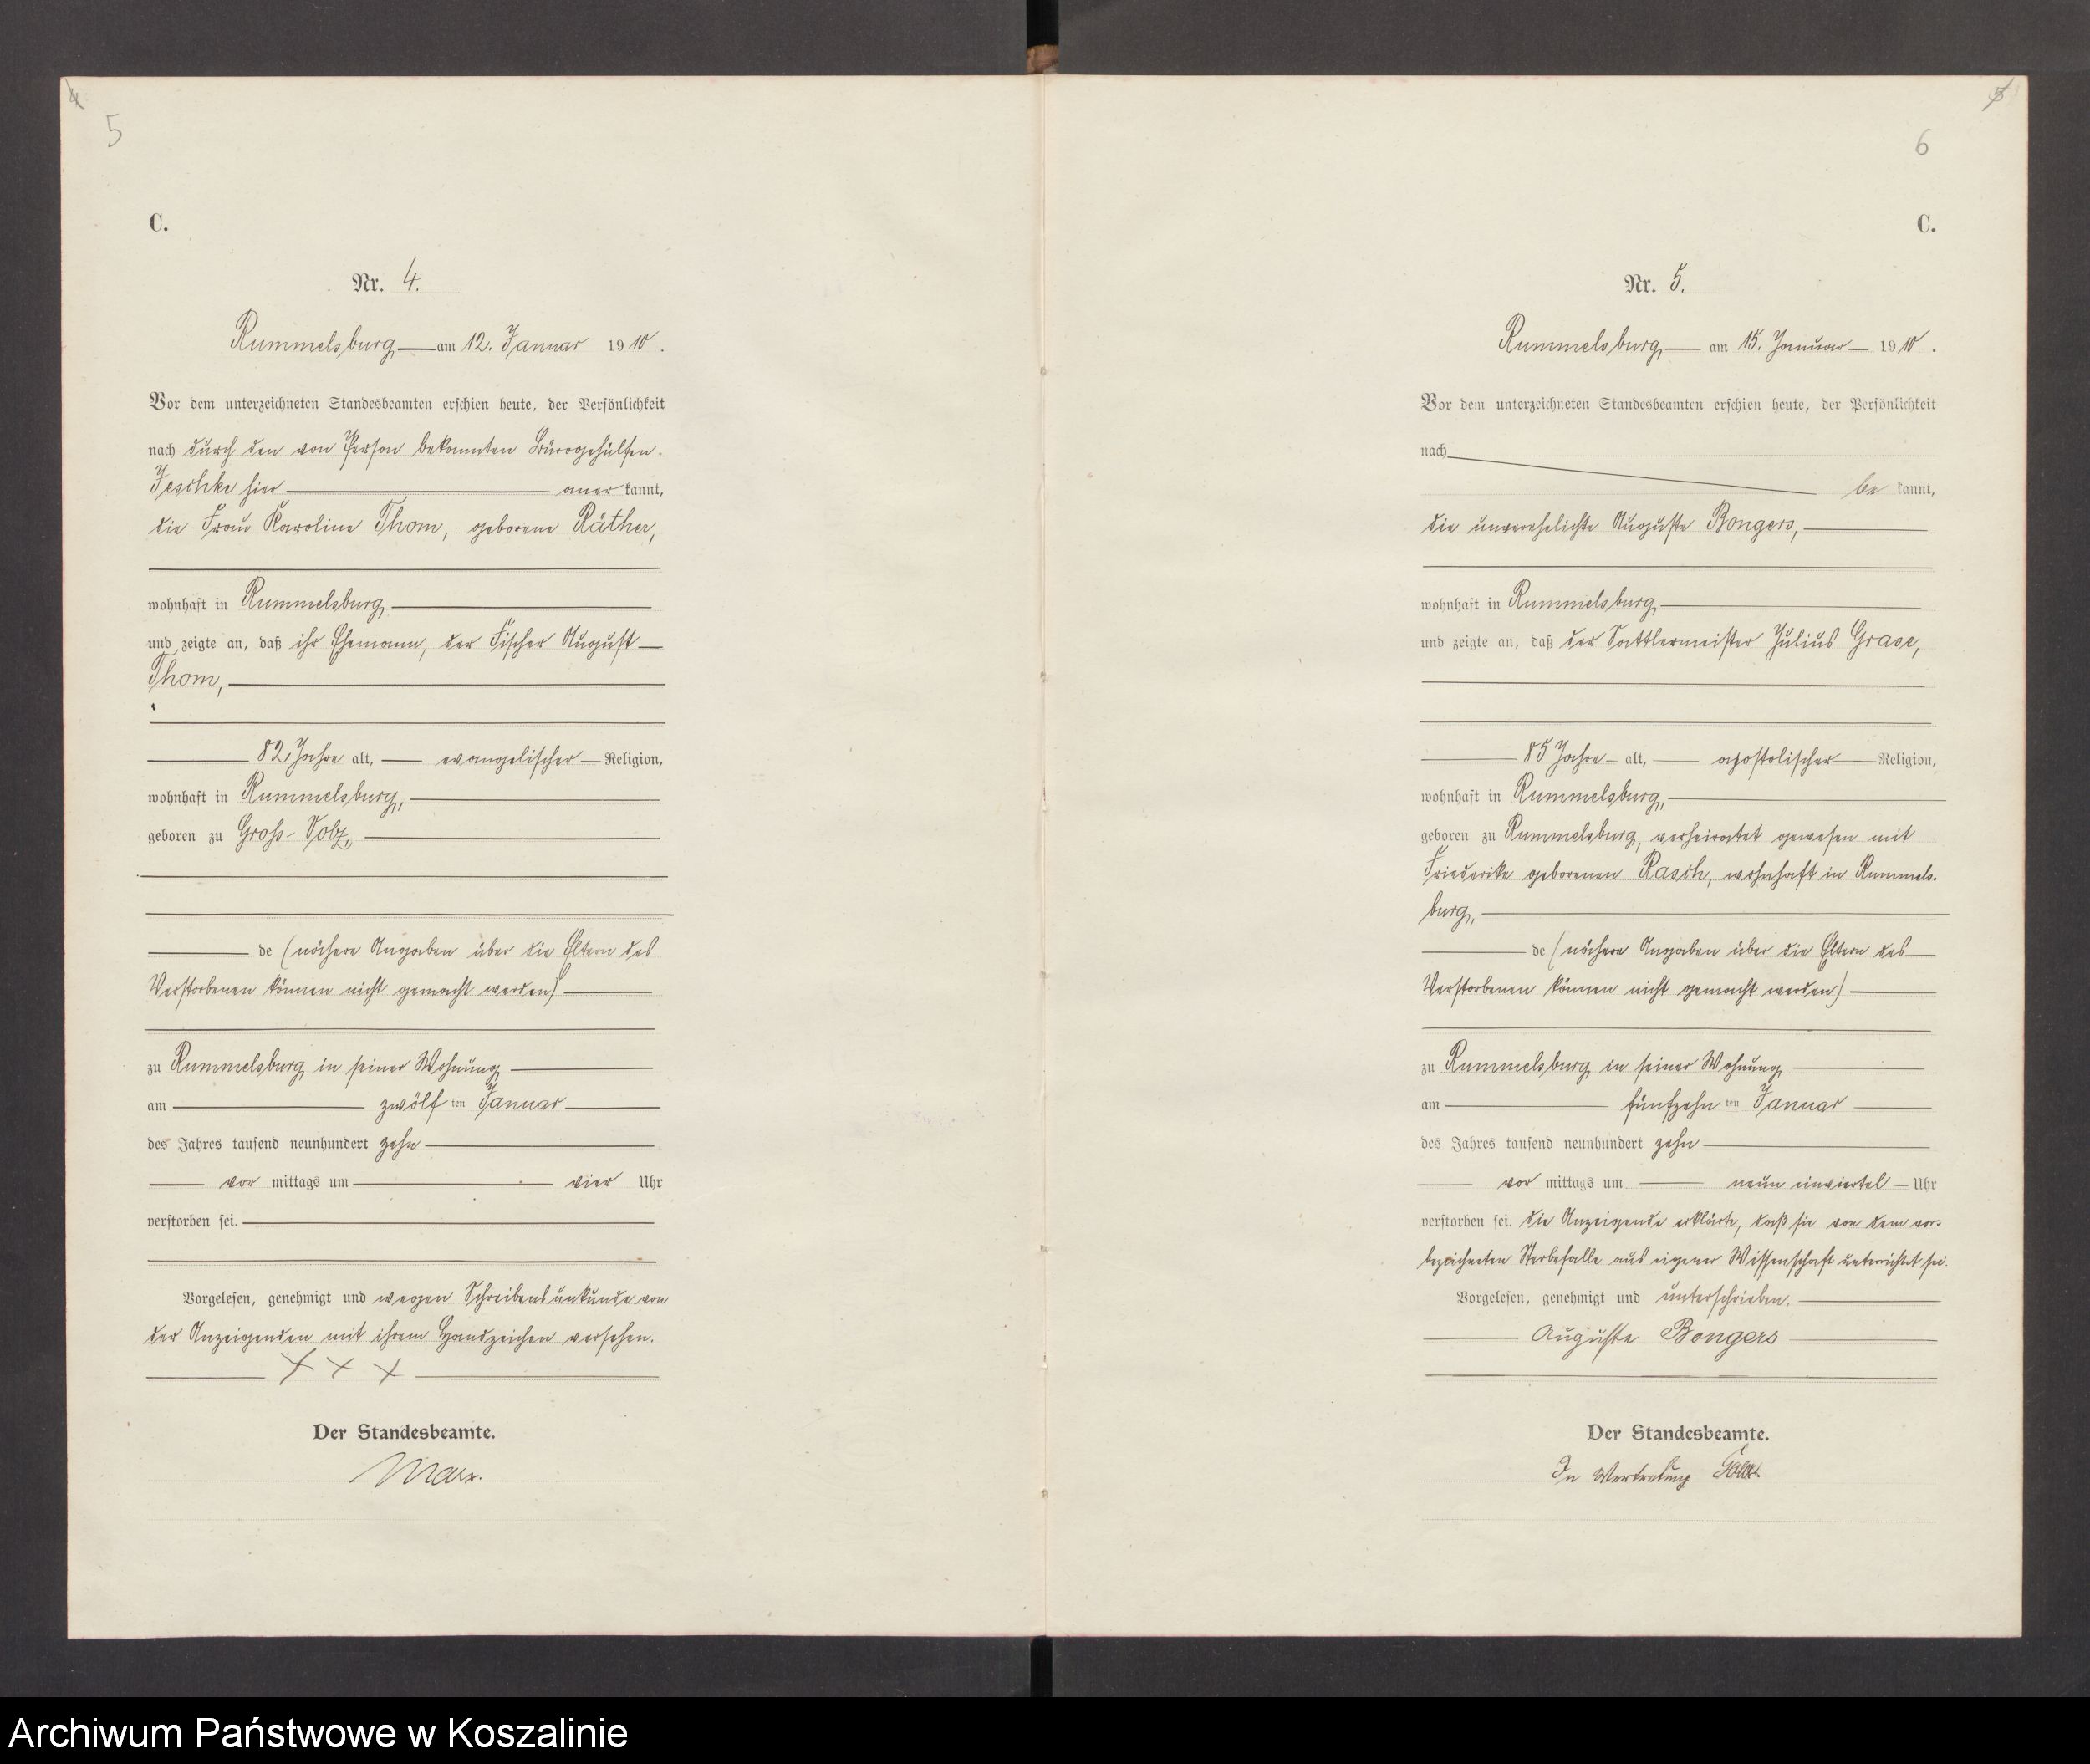 4
5
C.
Nr. 4.
Rummelsburg, am 12. Januar 1910.
Vor dem unterzeichneten Standesbeamten erschien heute, der Persönlichkeit
nach durch den von Person bekannten Bürogehülfen
Jeschke hier anerkannt,
die Frau Karoline Thom, geborene Räther,
wohnhaft in Rummelsburg,
und zeigte an, daß ihr Ehemann, der Fischer August
Thom,
82 Jahre alt, evangelischer Religion,
wohnhaft in Rummelsburg,
geboren zu Groß-Volz,
de (nähere Angaben über die Eltern des
Verstorbenen können nicht gemacht werden)
zu Rummelsburg in seiner Wohnung
am zwölften Januar
des Jahres tausend neunhundert zehn
vormittags um vier Uhr
verstorben sei.
Vorgelesen, genehmigt und wegen Schreibensunkunde von
der Anzeigenden mit ihrem Handzeichen versehen.
+ + +
Der Standesbeamte.
Marx.
6
C.
Nr. 5.
Rummelsburg, am 15. Januar 1910.
Vor dem unterzeichneten Standesbeamten erschien heute, der Persönlichkeit
nach
bekannt,
die unverehelichte Auguste Bongers,
wohnhaft in Rummelsburg,
und zeigte an, daß der Sattlermeister Julius Grase,
85 Jahre alt, apostolischer Religion,
wohnhaft in Rummelsburg,
geboren zu Rummelsburg, verheiratet gewesen mit
Friederike geborenen Rasch, wohnhaft in Rummels-
burg,
de (nähere Angaben über die Eltern des
Verstorbenen können nicht gemacht werden)
zu Rummelsburg in seiner Wohnung
am fünfzehnten Januar
des Jahres tausend neunhundert zehn
vormittags um neun einviertel Uhr
verstorben sei. Die Anzeigende erklärte, daß sie von dem vor-
bezeichneten Sterbefalle aus eigener Wissenschaft unterrichtet sei.
Vorgelesen, genehmigt und unterschrieben.
Auguste Bongers
Der Standesbeamte.
In Vertretung
Archiwum Państwowe w Koszalinie